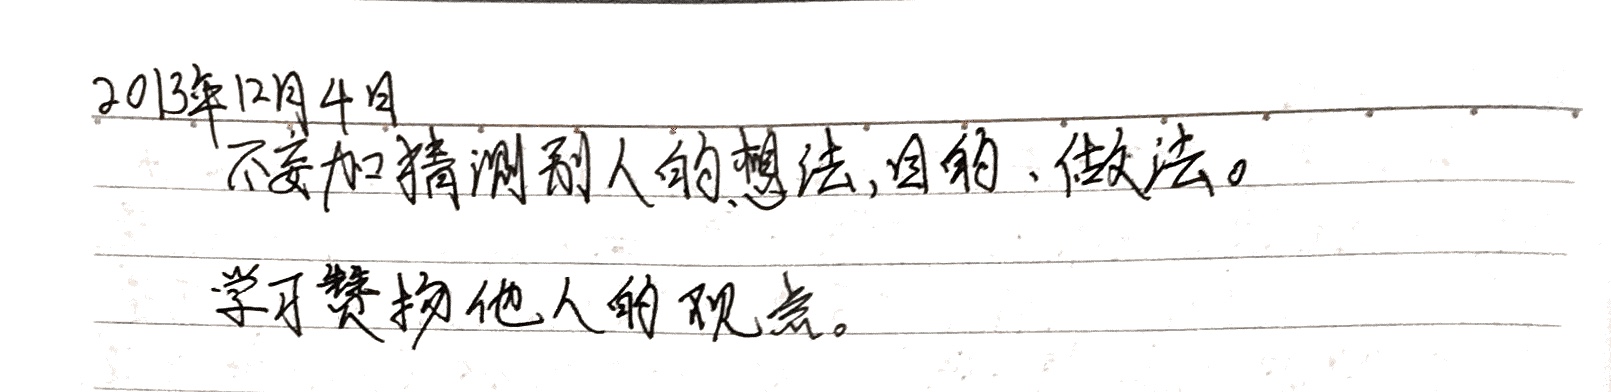 2013年12月4日
不妄加猜测别人的想法,目的、做法。
学习赞扬他人的观点。